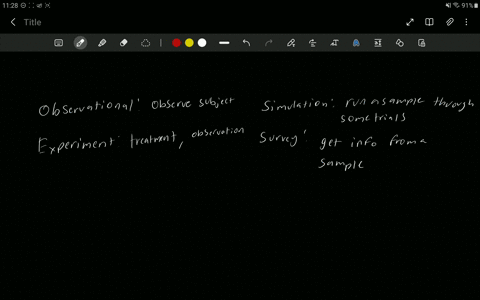 11:28
91%
Title
Observational: Observe subject
Experiment: treatment, observation
Simulation: run a sample through
some trials
Survey: get info from a
sample